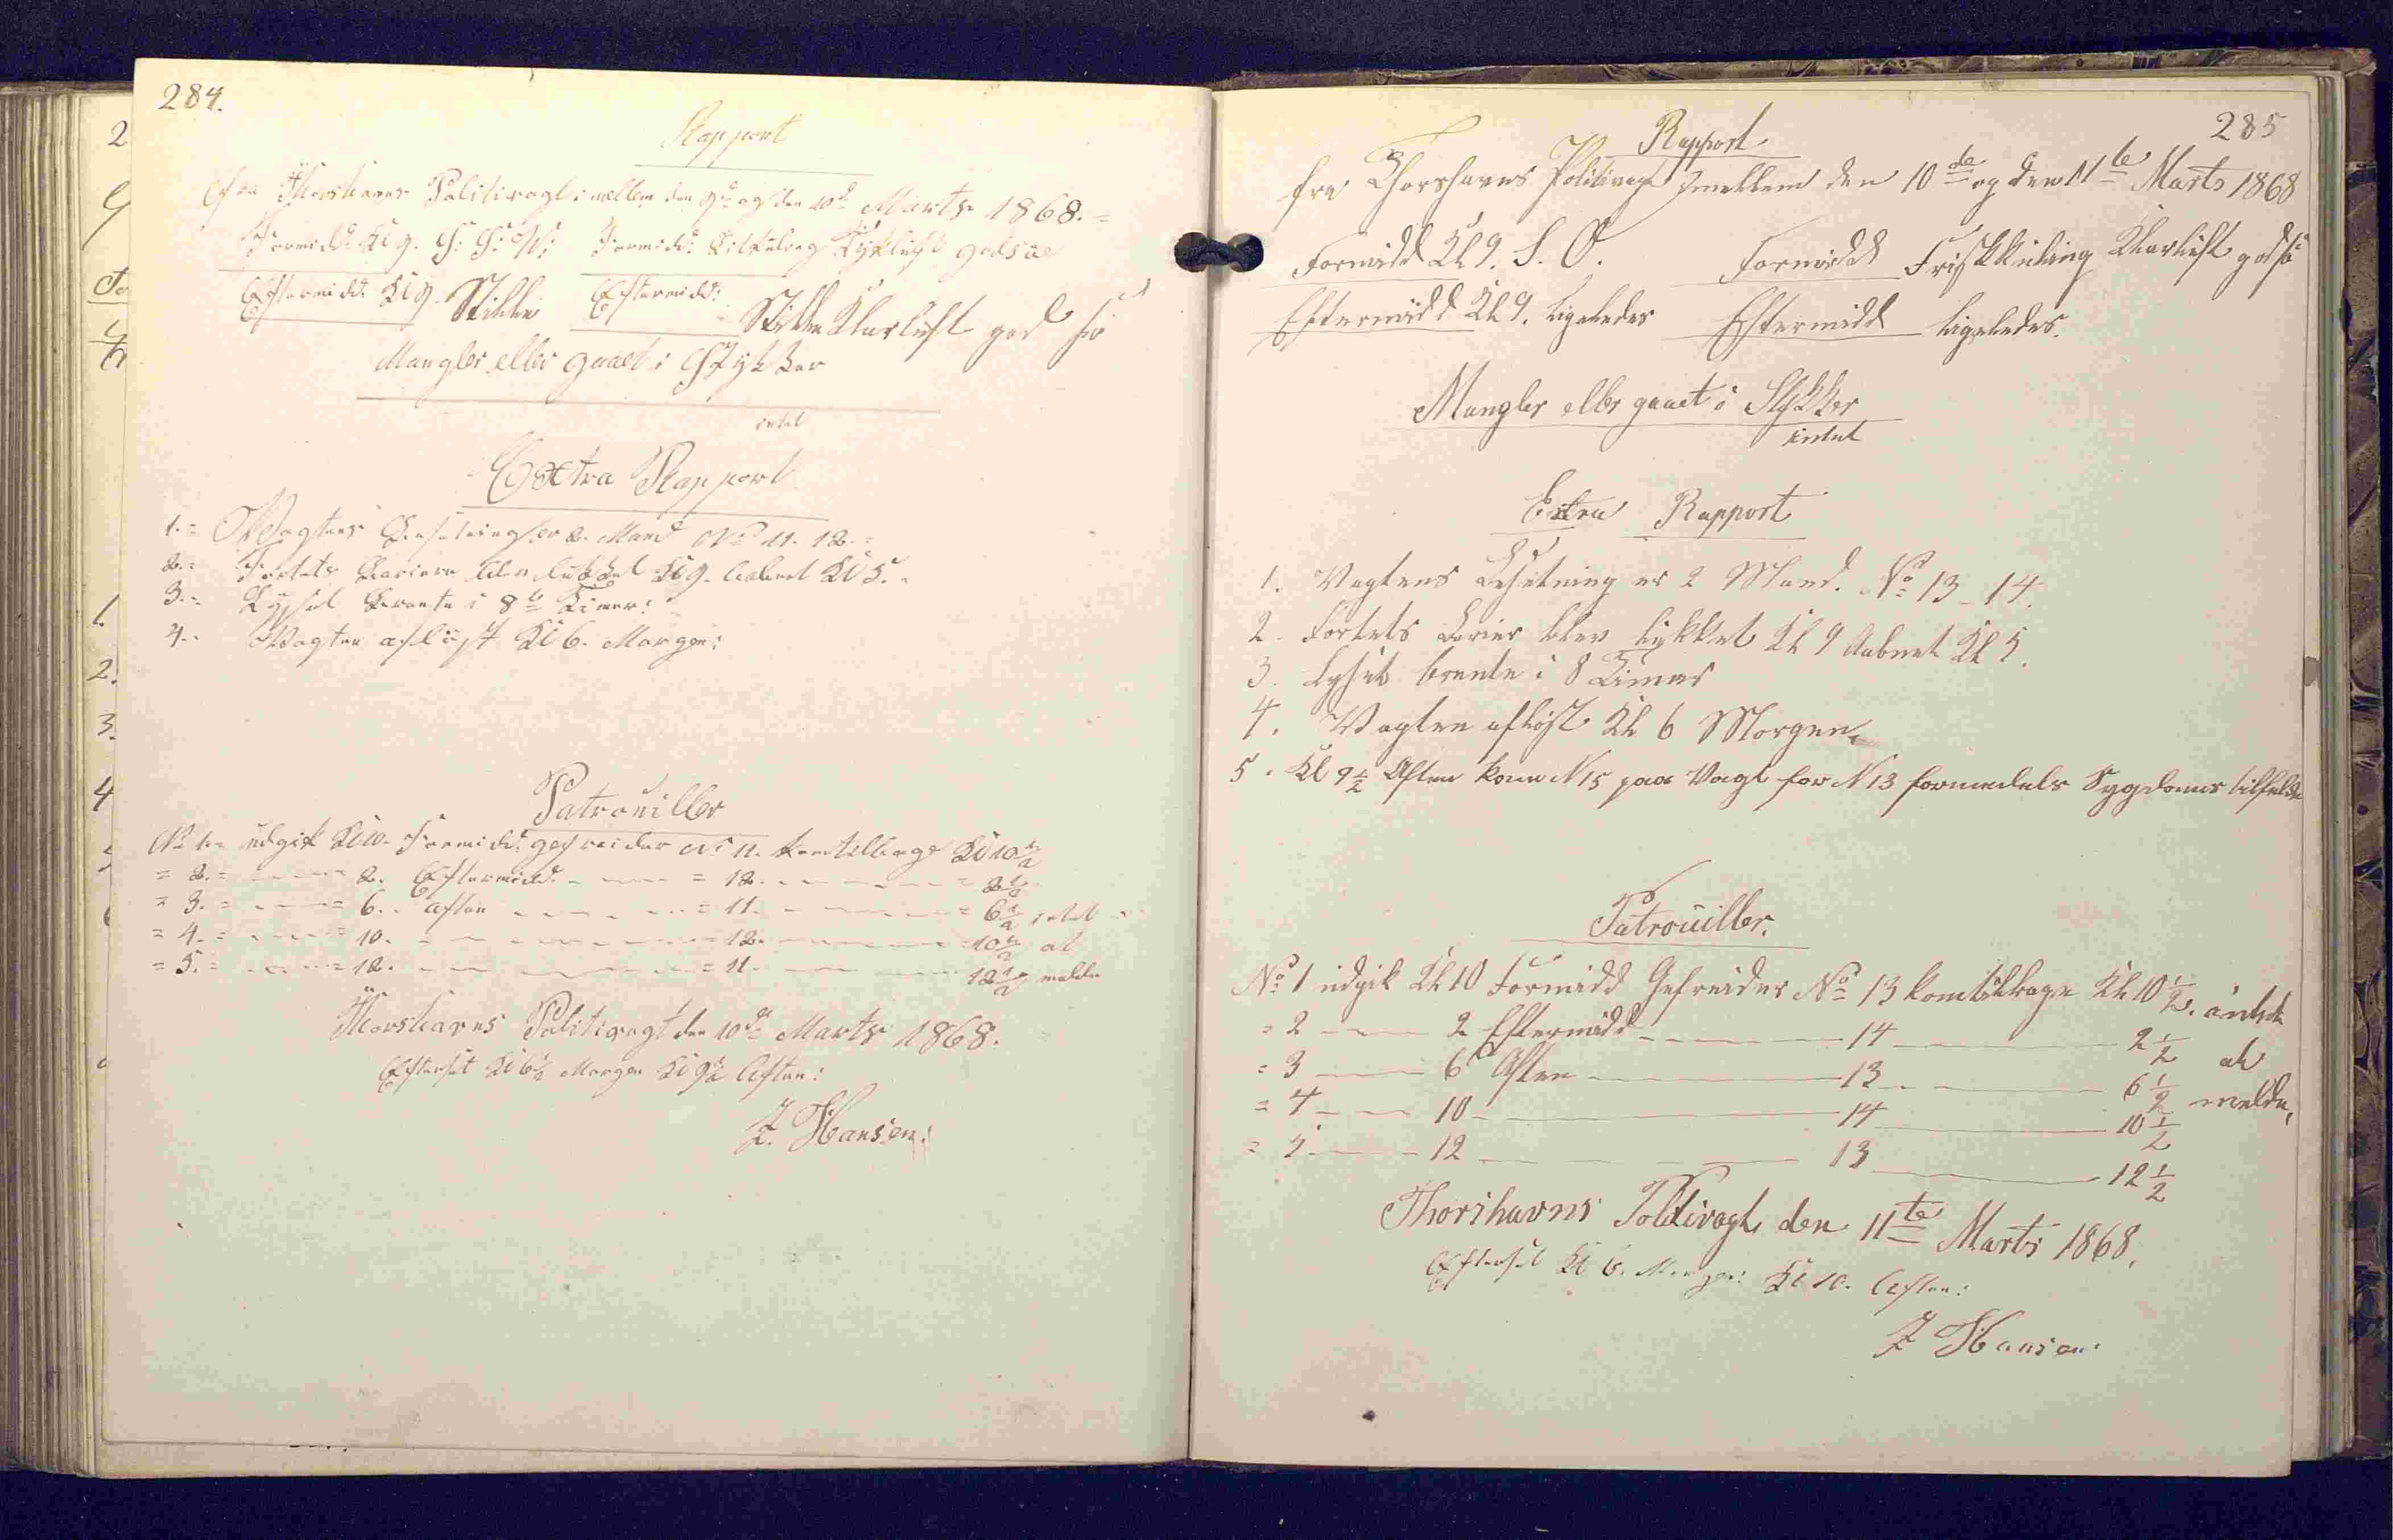 284.
Rapport
fra Thorshavns Politivagt imellem den 9de og den 10de Marts 1868.
Formidd: Kl 9. S: S: W: Formidd: Stilkuling Tÿkluft god süe
Eftermidd: Kl 9. Stille Eftermidd: Stille Klarluft god sio
Mangler eller gaaet i Stÿkker
intet
Extra Rapport
1. Wagtens Besetning er 2. Mand No 11. 12.
2. Fortets Bariere blev lukket Kl 9. Aabnet Kl 5.
3. Lÿset Brente i 8te Timer:
4. Wagten aflöst Kl 6. Morgen:
Patrouiller
No 1. udgik Kl 10. Formidd: gefreider No 11. kom tilbage Kl 10 1/2
= 2. = - - - 2. Eftermidd. - - - = 12. - - - - 2 1/2
= 3. = - - - 6. Aften - - - = 11. - - - - = 6 1/2 intet
= 4. = - - - 10. - - - - = 12. - - - - = 10 1/2 at
= 5. = - - - 12. - - - - = 11. - - - - 12 1/2 melde
Thorshavns Politivagt den 10de Marts 1868.
Efterset Kl 6 1/2 Morgen Kl 9 1/2 Aften:
Z. Hansen:
285
Rapport
fra Thorshavns Politivagt Imellem den 10de og den 11te Marts 1868
Formidd Kl 9. S. O. Formidd Frisk Kuling Klarluft god sö
Eftermidd Kl 9. ligeledes Eftermidd ligeledes.
Mangler eller gaaet i Stykker
intet
Extra Rapport
1. Vagtens Besetning er 2 Mand. No 13 - 14.
2. Fortets Barier blev lukket Kl 9 Aabnet Kl 5.
3. Lyset brente i 8 Timer
4. Vagten aflöst Kl 6 Morgen
5. Kl 9 1/2 Aften kom N 15 paa Vagt for N 13 formedels Sygdoms tilfelde
Patrouiller.
No 1 udgik Kl 10 Formidd Gefreider No 13 kom tilbage Kl 10 1/2. intet
= 2 - - - 2 Eftermidd - - - 14 - - - 2 1/2 at
= 3 - - - 6 Aften - - - 13 - - - 6 1/2 melde.
= 4 - - - 10 - - - 14 - - - 10 1/2
= 5 - - - 12 - - - 13 - - - 12 1/2
Thorshavns Politivagt den 11te Marts 1868.
Efterset Kl 6. Morgen: Kl 10. Aften:
Z Hansen: